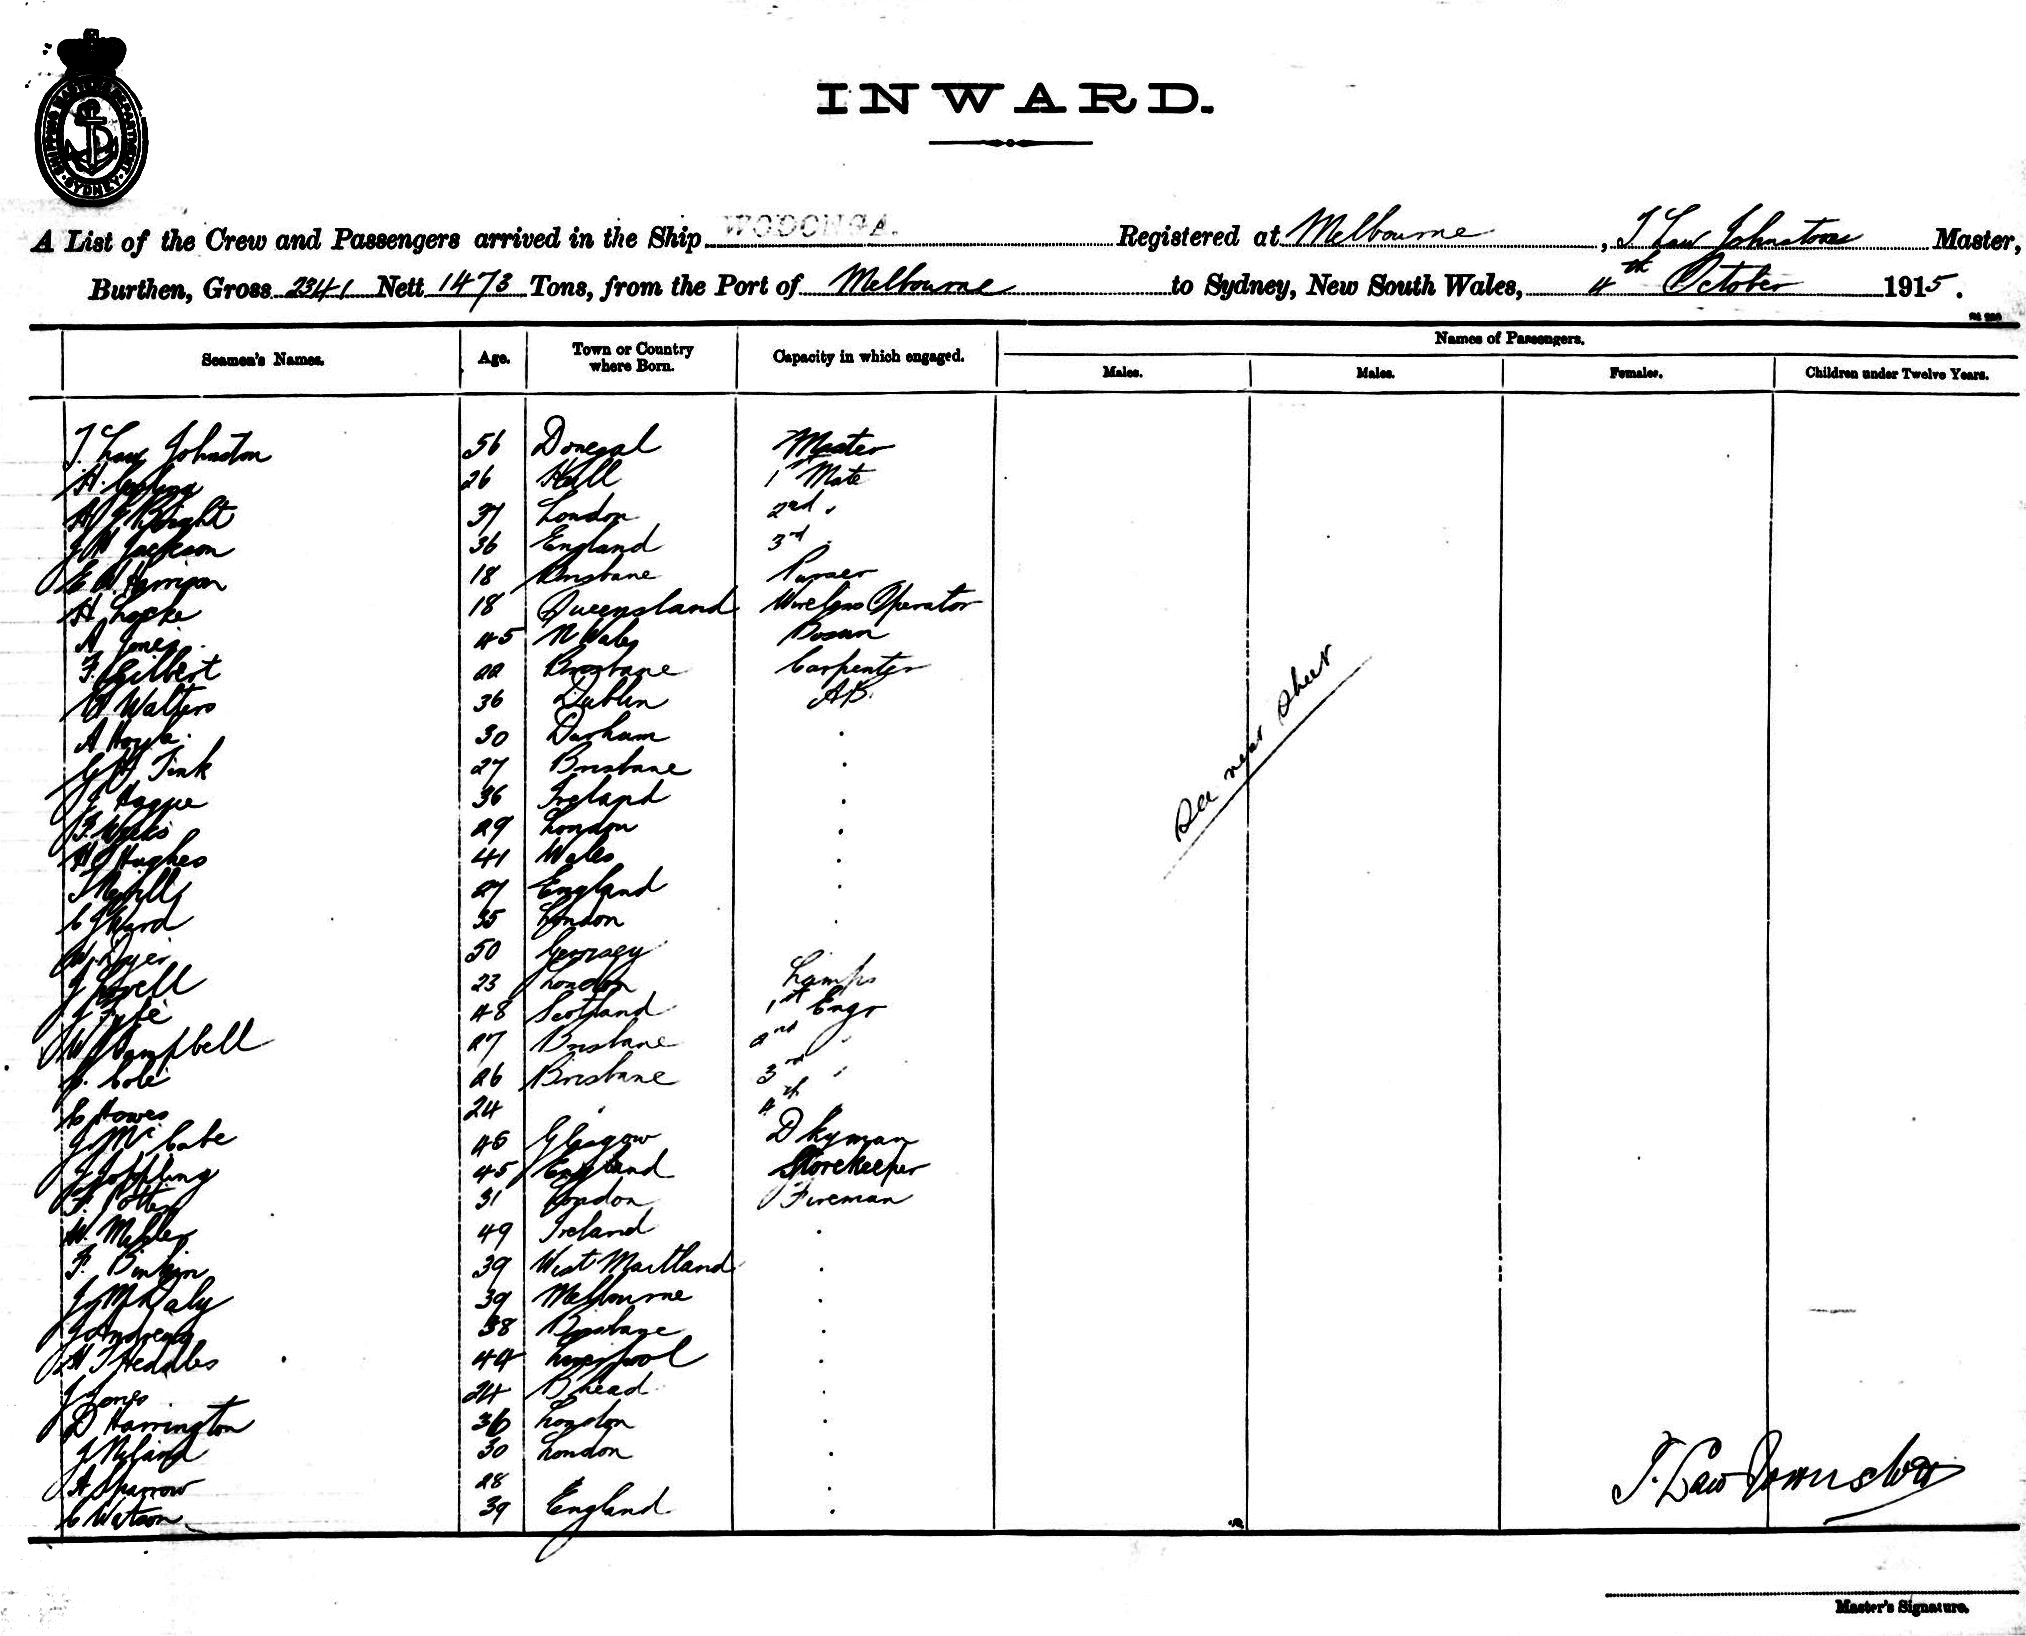 SHIPPING MASTER'S DEPARTMENT
SYDNEY
INWARD.
A List of the Crew and Passengers arrived in the Ship WODONGA. Registered at Melbourne, T Law Johnstone Master,
Burthen, Gross 2341 Nett 1473 Tons, from the Port of Melbourne to Sydney, New South Wales, 4th October 1915.
Seamen's Names. Age. Town or Country where Born. Capacity in which engaged. Names of Passengers.
Males. Males. Females. Children under Twelve Years.
T. Law Johnston 56 Donegal Master
H. 26 Hull 1st Mate
Wright 37 London 2nd "
J W Jackson 36 England 3rd "
E W Harrigan 18 Brisbane Purser
H Locke 18 Queensland Wireless Operator
A Jones 45 N Wales Bosun
F. Gilbert 22 Brisbane Carpenter
Walters 36 Dublin AB.
A Hoyle 30 Durham "
G H Tink 27 Brisbane "
J Hague 36 Ireland "
F. Weeks 29 London "
H J Hughes 41 Wales "
T Nevill 27 England "
C J Ward 35 London "
W. Dyer 50 Gernsey
J Lovell 23 London Lamps
J Fyfe 48 Scotland 1st Engr
W Campbell 27 Brisbane 2nd "
C. Cole 26 Brisbane 3rd "
C Howes 24 " 4th
J McCabe 45 Glasgow Dkyman
J Jobling 45 England Storekeeper
F. Potter 31 London Fireman
W. Miller 49 Ireland "
F. 39 West Maitland "
J McDaly 39 Melbourne "
J Andrews 38 Brisbane "
H T Heddles 44 Liverpool "
J Jones 24 B'head "
D Harrington 36 London "
J Nyland 30 London "
A Sparrow 28 "
C Watson 39 England "
See next sheet
T. Law Johnston
Master's Signature.